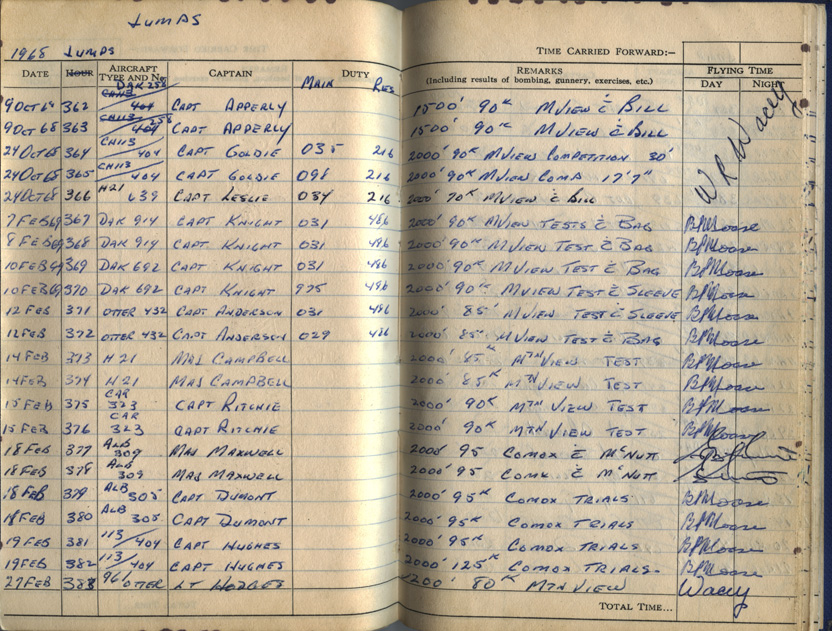 JUMPS
1968 JUMPS
TIME CARRIED FORWARD:—
DATE HOUR AIRCRAFT TYPE AND No. CAPTAIN MAIN DUTY RES REMARKS (Including results of bombing, gunnery, exercises, etc.) FLYING TIME DAY NIGHT
DAK 258
9 OCT 68 362 CH113 404 CAPT APPERLY 1500' 90K MVIEW C BILL
9 OCT 68 363 CH113 404 258 CAPT APPERLY 1500' 90K MVIEW C BILL
24 OCT 68 364 CH113/404 CAPT GOLDIE 035 216 2000' 90K MVIEW COMPETITION 30'
24 OCT 68 365 CH113/404 CAPT GOLDIE 098 216 2000' 90K MVIEW COMP 17'7"
24 OCT 68 366 H21 639 CAPT LESLIE 034 216 2000' 70K MVIEW C BILL
W R Wacey
7 FEB 69 367 DAK 914 CAPT KNIGHT 031 486 2000' 90K MVIEW TESTS C BAG
8 FEB 69 368 DAK 914 CAPT KNIGHT 031 486 2000' 90K MVIEW TEST C BAG
10 FEB 69 369 DAK 692 CAPT KNIGHT 031 486 2000' 90K MVIEW TEST C BAG
10 FEB 69 370 DAK 692 CAPT KNIGHT 975 486 2000' 90K MVIEW TEST C SLEEVE
12 FEB 371 OTTER 432 CAPT ANDERSON 031 486 2000' 85K MVIEW TEST C SLEEVE
12 FEB 372 OTTER 432 CAPT ANDERSON 029 486 2000' 85K MVIEW TEST C BAG
14 FEB 373 H21 MAJ CAMPBELL 2000' 85K MTN VIEW TEST
14 FEB 374 H21 MAJ CAMPBELL 2000' 85K MTN VIEW TEST
15 FEB 375 CAR 323 CAPT RITCHIE 2000' 90K MTN VIEW TEST
15 FEB 376 CAR 323 CAPT RITCHIE 2000' 90K MTN VIEW TEST
18 FEB 377 ALB 309 MAJ MAXWELL 2000' 95 COMOX C McNUTT
18 FEB 378 ALB 309 MAJ MAXWELL 2000' 95 COMX C McNUTT
18 FEB 379 ALB 305 CAPT DUMONT 2000' 95K COMOX TRIALS
18 FEB 380 ALB 305 CAPT DUMONT 2000' 95K COMOX TRIALS
19 FEB 381 113/404 CAPT HUGHES 2000' 95K COMOX TRIALS
19 FEB 382 113/404 CAPT HUGHES 2000' 125K COMOX TRIALS.
27 FEB 383 961 OTTER LT HODGES 1200' 80K MTN VIEW Wacey
TOTAL TIME...